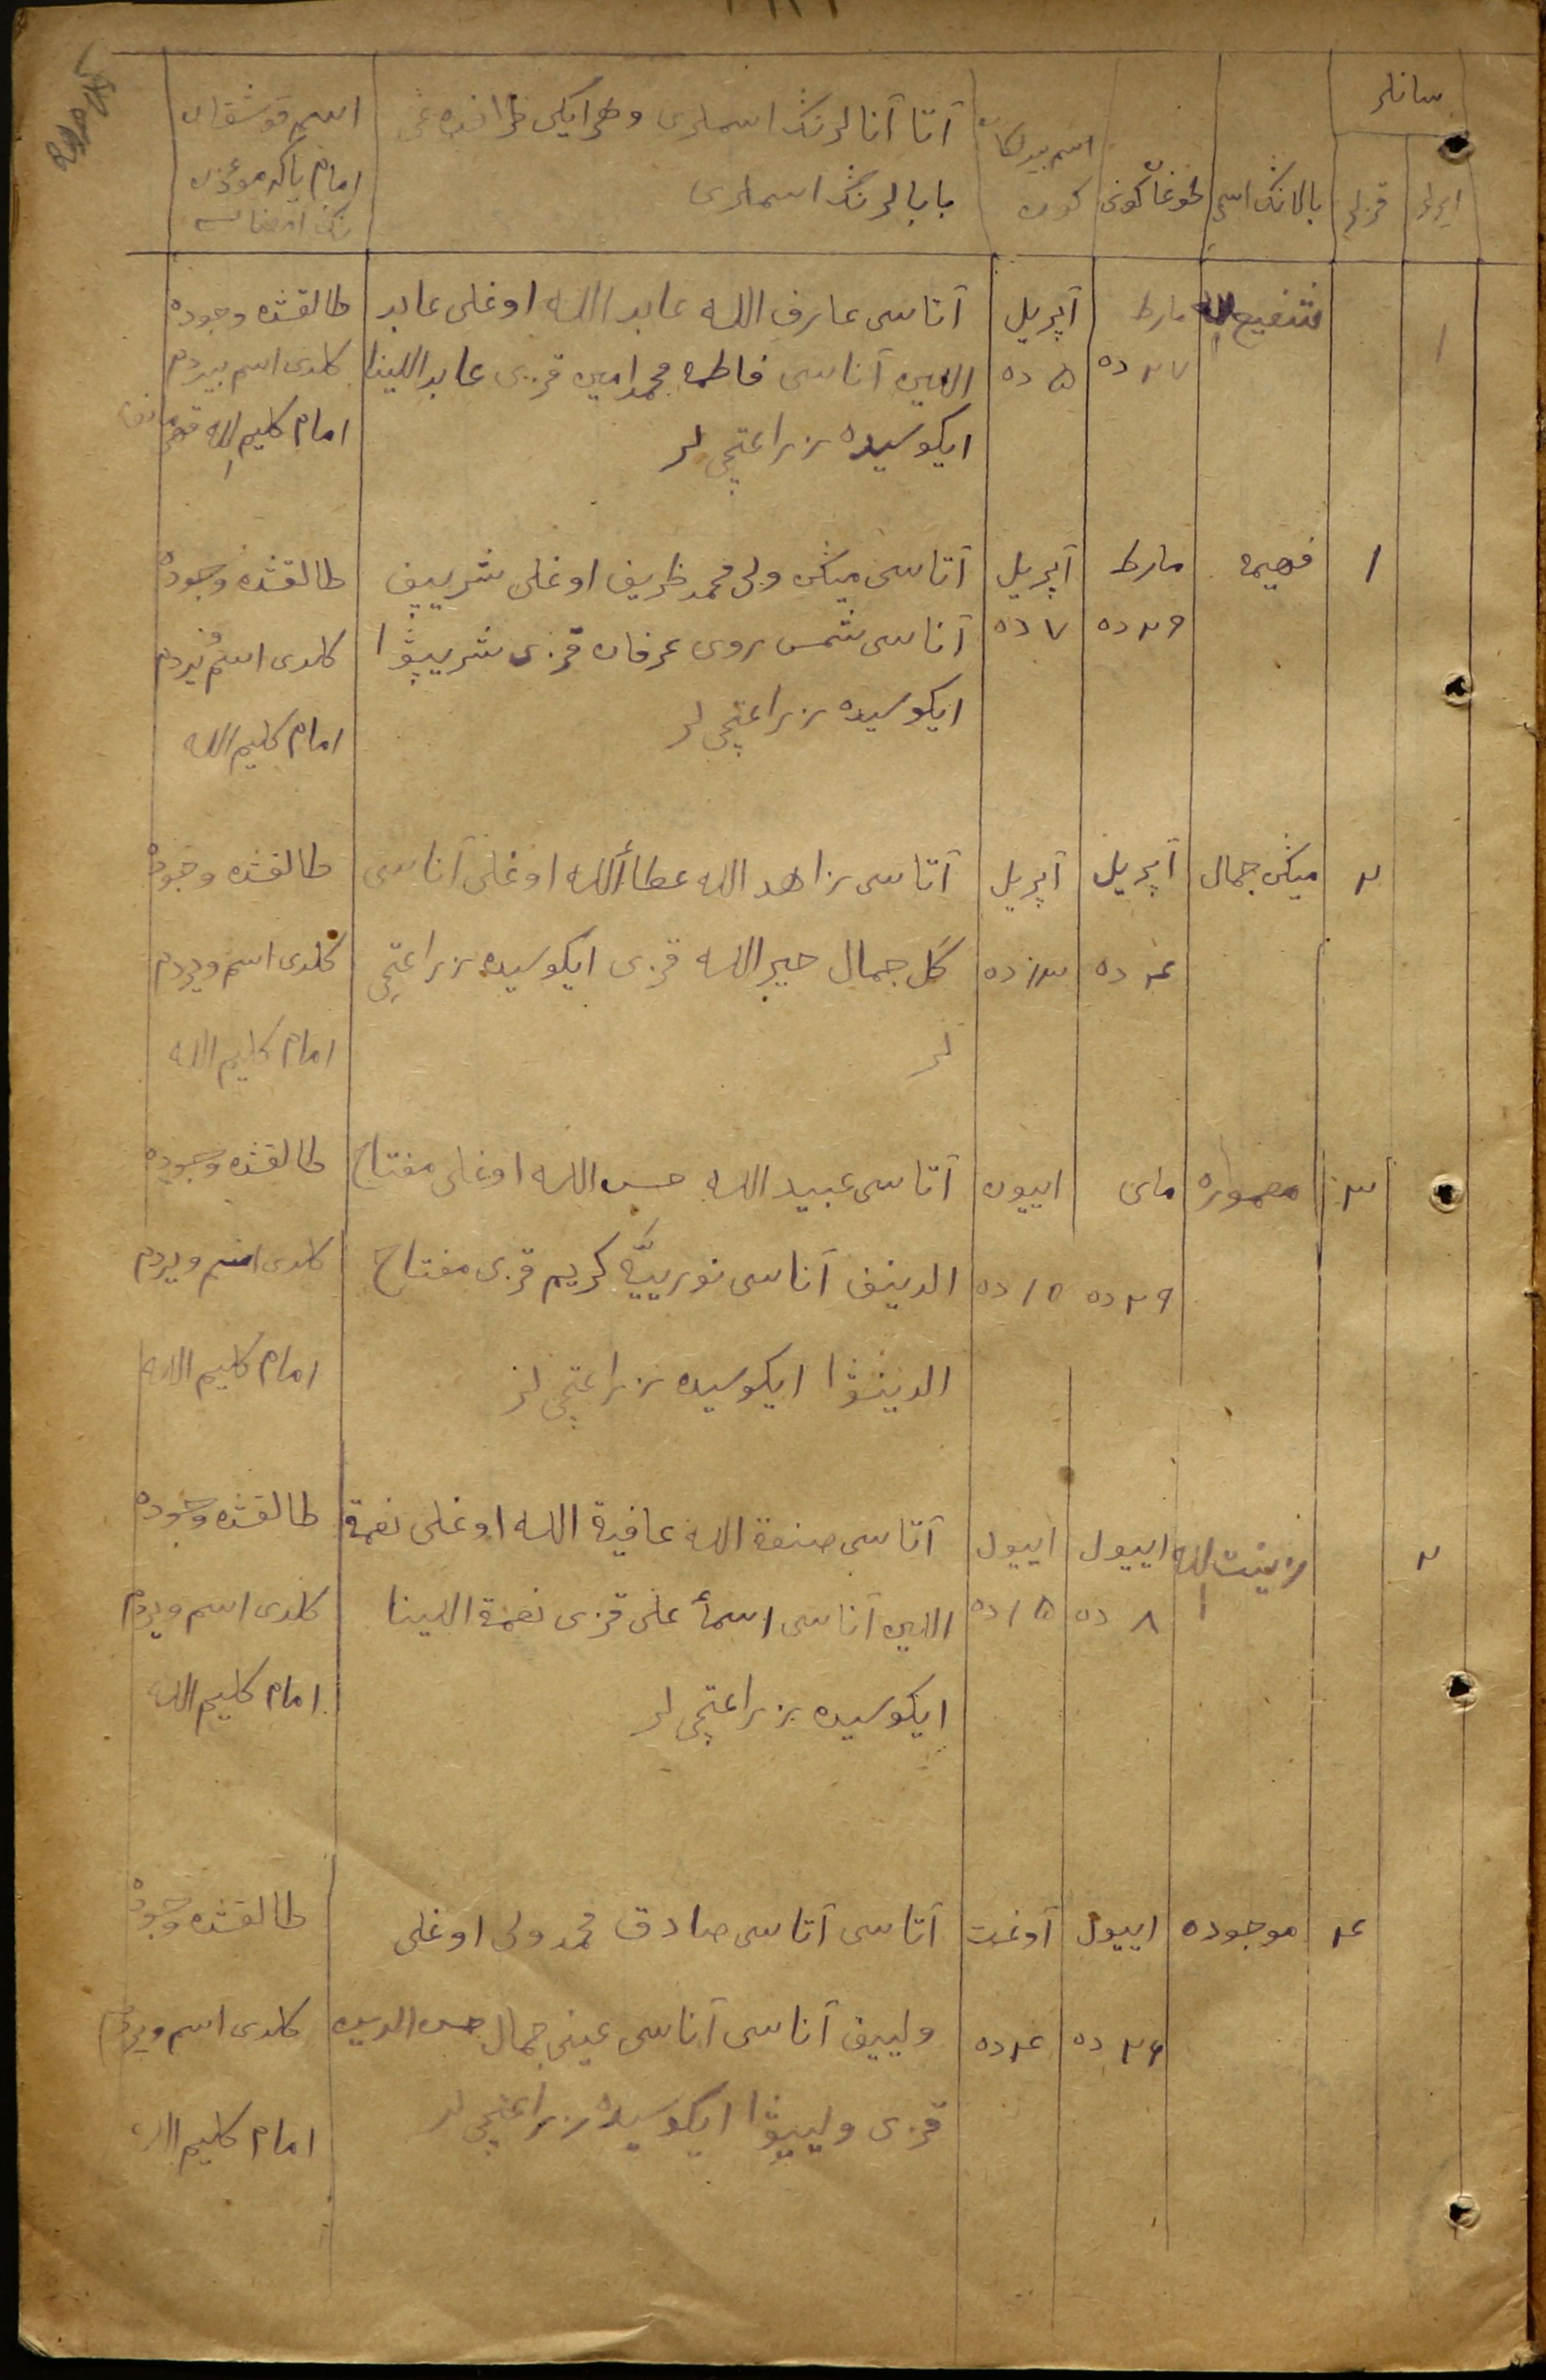 سانلر
ایرلر
قزلر
بالانڭ اسمی
طوغان کونی
اسم بیرلکان کون
آتا آنالرنڭ اسملری وهر ایکی طرافندەغی
بابالرنڭ اسملری
اسم قوشقان
امام یاکه مؤذن
١
شفیع الله
مارط
٢٧ ده
آپریل
٥ ده
آتاسی عارف الله عابد الله اوغلی عابد
الدین آناسی فاطمه محمد امین قزی عابد اللینا
ایکوسیده زراعتچی لر
طالقشده وجوده
کلدی اسم بیردم
امام کلیم الله
١
فهیمه
مارط
٢٩ ده
آپریل
٧ ده
آتاسی میڭ ولی محمد ظریف اوغلی شریپف
آناسی شمس روی عرفان قزی شریپوا
ایکوسیده زراعتچی لر
طالقشده وجوده
کلدی اسم بیردم
امام کلیم الله
٢
میڭ جمال
آپریل
٤ ده
آپریل
١٣ ده
آتاسی زاهد الله عطأالله اوغلی آناسی
گل جمال خیر الله قزی ایکوسیده زراعتچی
لر
طالقشده وجوده
کلدی اسم ویردم
امام کلیم الله
٣
معموره
مای
٢٩ ده
اییون
١٥ ده
آتاسی عبید الله حسن الله اوغلی مفتاح
الدینف آناسی نورییّه کریم قزی مفتاح
الدینوا ایکوسیده زراعتچی لر
طالقشده وجوده
کلدی اسم ویردم
امام کلیم الله
٢
زینت الله
اییول
٨ ده
اییول
١٥ ده
آتاسی صنعة الله عافیة الله اوغلی نعمة
الدین آناسی اسمأ علی قزی نعمة اللینا
ایکوسیده زراعتچی لر
طالقشده وجوده
کلدی اسم ویردم
امام کلیم الله
٤
موجوده
اییول
٢٦ ده
آوغست
٤ ده
آتاسی آتاسی صادق محمد ولی اوغلی
ولییف آناسی آناسی عینی جمال حسن الدین
قزی ولییوا ایکوسیده زراعتچی لر
طالقشده وجوده
کلدی اسم ویردم
امام کلیم الله